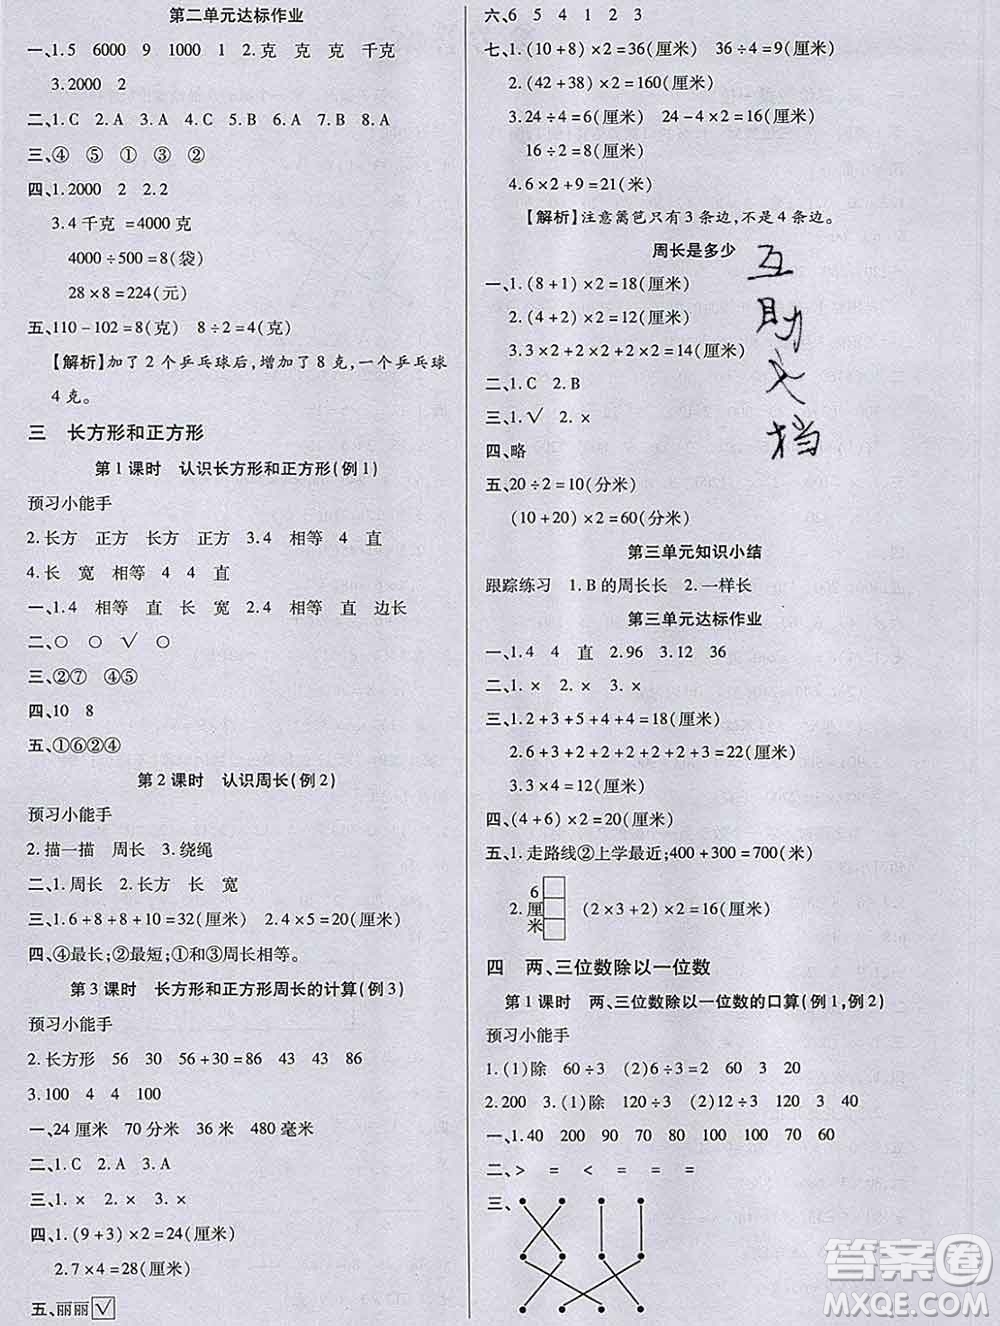 第二单元达标作业
一、1.5 6000 9 1000 1 2.克 克 克 千克
3.2000 2
二、1.C 2.A 3.A 4.C 5.B 6.A 7.B 8.A
三、④ ⑤ ① ③ ②
四、1.2000 2 2.2
3.4 千克=4000 克
4000÷500=8(袋)
28×8=224(元)
五、110-102=8(克) 8÷2=4(克)
【解析】加了 2 个乒乓球后,增加了 8 克,一个乒乓球
4 克。
三 长方形和正方形
第 1 课时 认识长方形和正方形(例 1)
预习小能手
2.长方 正方 长方 正方 3.4 相等 4 直
4.长 宽 相等 4 4 直
一、1.4 相等 直 长 宽 2.4 相等 直 边长
二、○ ○ √ ○
三、②⑦ ④⑤
四、10 8
五、①⑥②④
第 2 课时 认识周长(例 2)
预习小能手
2.描一描 周长 3.绕绳
二、1.周长 2.长 宽
三、1.6+8+8+10=32(厘米) 2.4×5=20(厘米)
四、④最长;②最短;①和③周长相等。
第 3 课时 长方形和正方形周长的计算(例 3)
预习小能手
2.长方形 56 30 56+30=86 43 43 86
3.100 4 4 100
一、24 厘米 70 分米 36 米 480 毫米
二、1.C 2.A 3.A
三、1.× 2.× 3.×
四、1.(9+3)×2=24(厘米)
2.7×4=28(厘米)
五、丽丽 √
六、6 5 4 1 2 3
七、1.(10+8)×2=36(厘米) 36÷4=9(厘米)
2.(42+38)×2=160(厘米)
3.24÷4=6(厘米) 24-4×2=16(厘米)
16÷2=8(厘米)
4.6×2+9=21(米)
【解析】注意篱笆只有 3 条边,不是 4 条边。
周长是多少
一、1.(8+1)×2=18(厘米)
2.(4+2)×2=12(厘米)
3.3×2+2+2+2+2=14(厘米)
二、1.C 2.B
三、1.√ 2.×
四、略
五、20÷2=10(分米)
(10+20)×2=60(分米)
第三单元知识小结
跟踪练习 1.B 的周长长 2.一样长
第三单元达标作业
一、1.4 4 直 2.96 3.12 36
二、1.× 2.× 3.×
三、1.2+3+5+4+4=18(厘米)
2.6+3+2+2+2+2+2+3=22(厘米)
3.3×4=12(厘米)
四、(4+6)×2=20(厘米)
五、1.走路线②上学最近;400+300=700(米)
2. 6厘米 (2×3+2)×2=16(厘米)
四 两、三位数除以一位数
第 1 课时 两、三位数除以一位数的口算(例 1,例 2)
预习小能手
1.(1)除 60÷3 (2)6÷3=2 20 20
2.200 3.(1)除 120÷3 (2)12÷3 40
一、1.40 200 90 70 60 80 70 60
二、> = < = = =
三、
互
助
文
档
答案圈
MXQE.COM